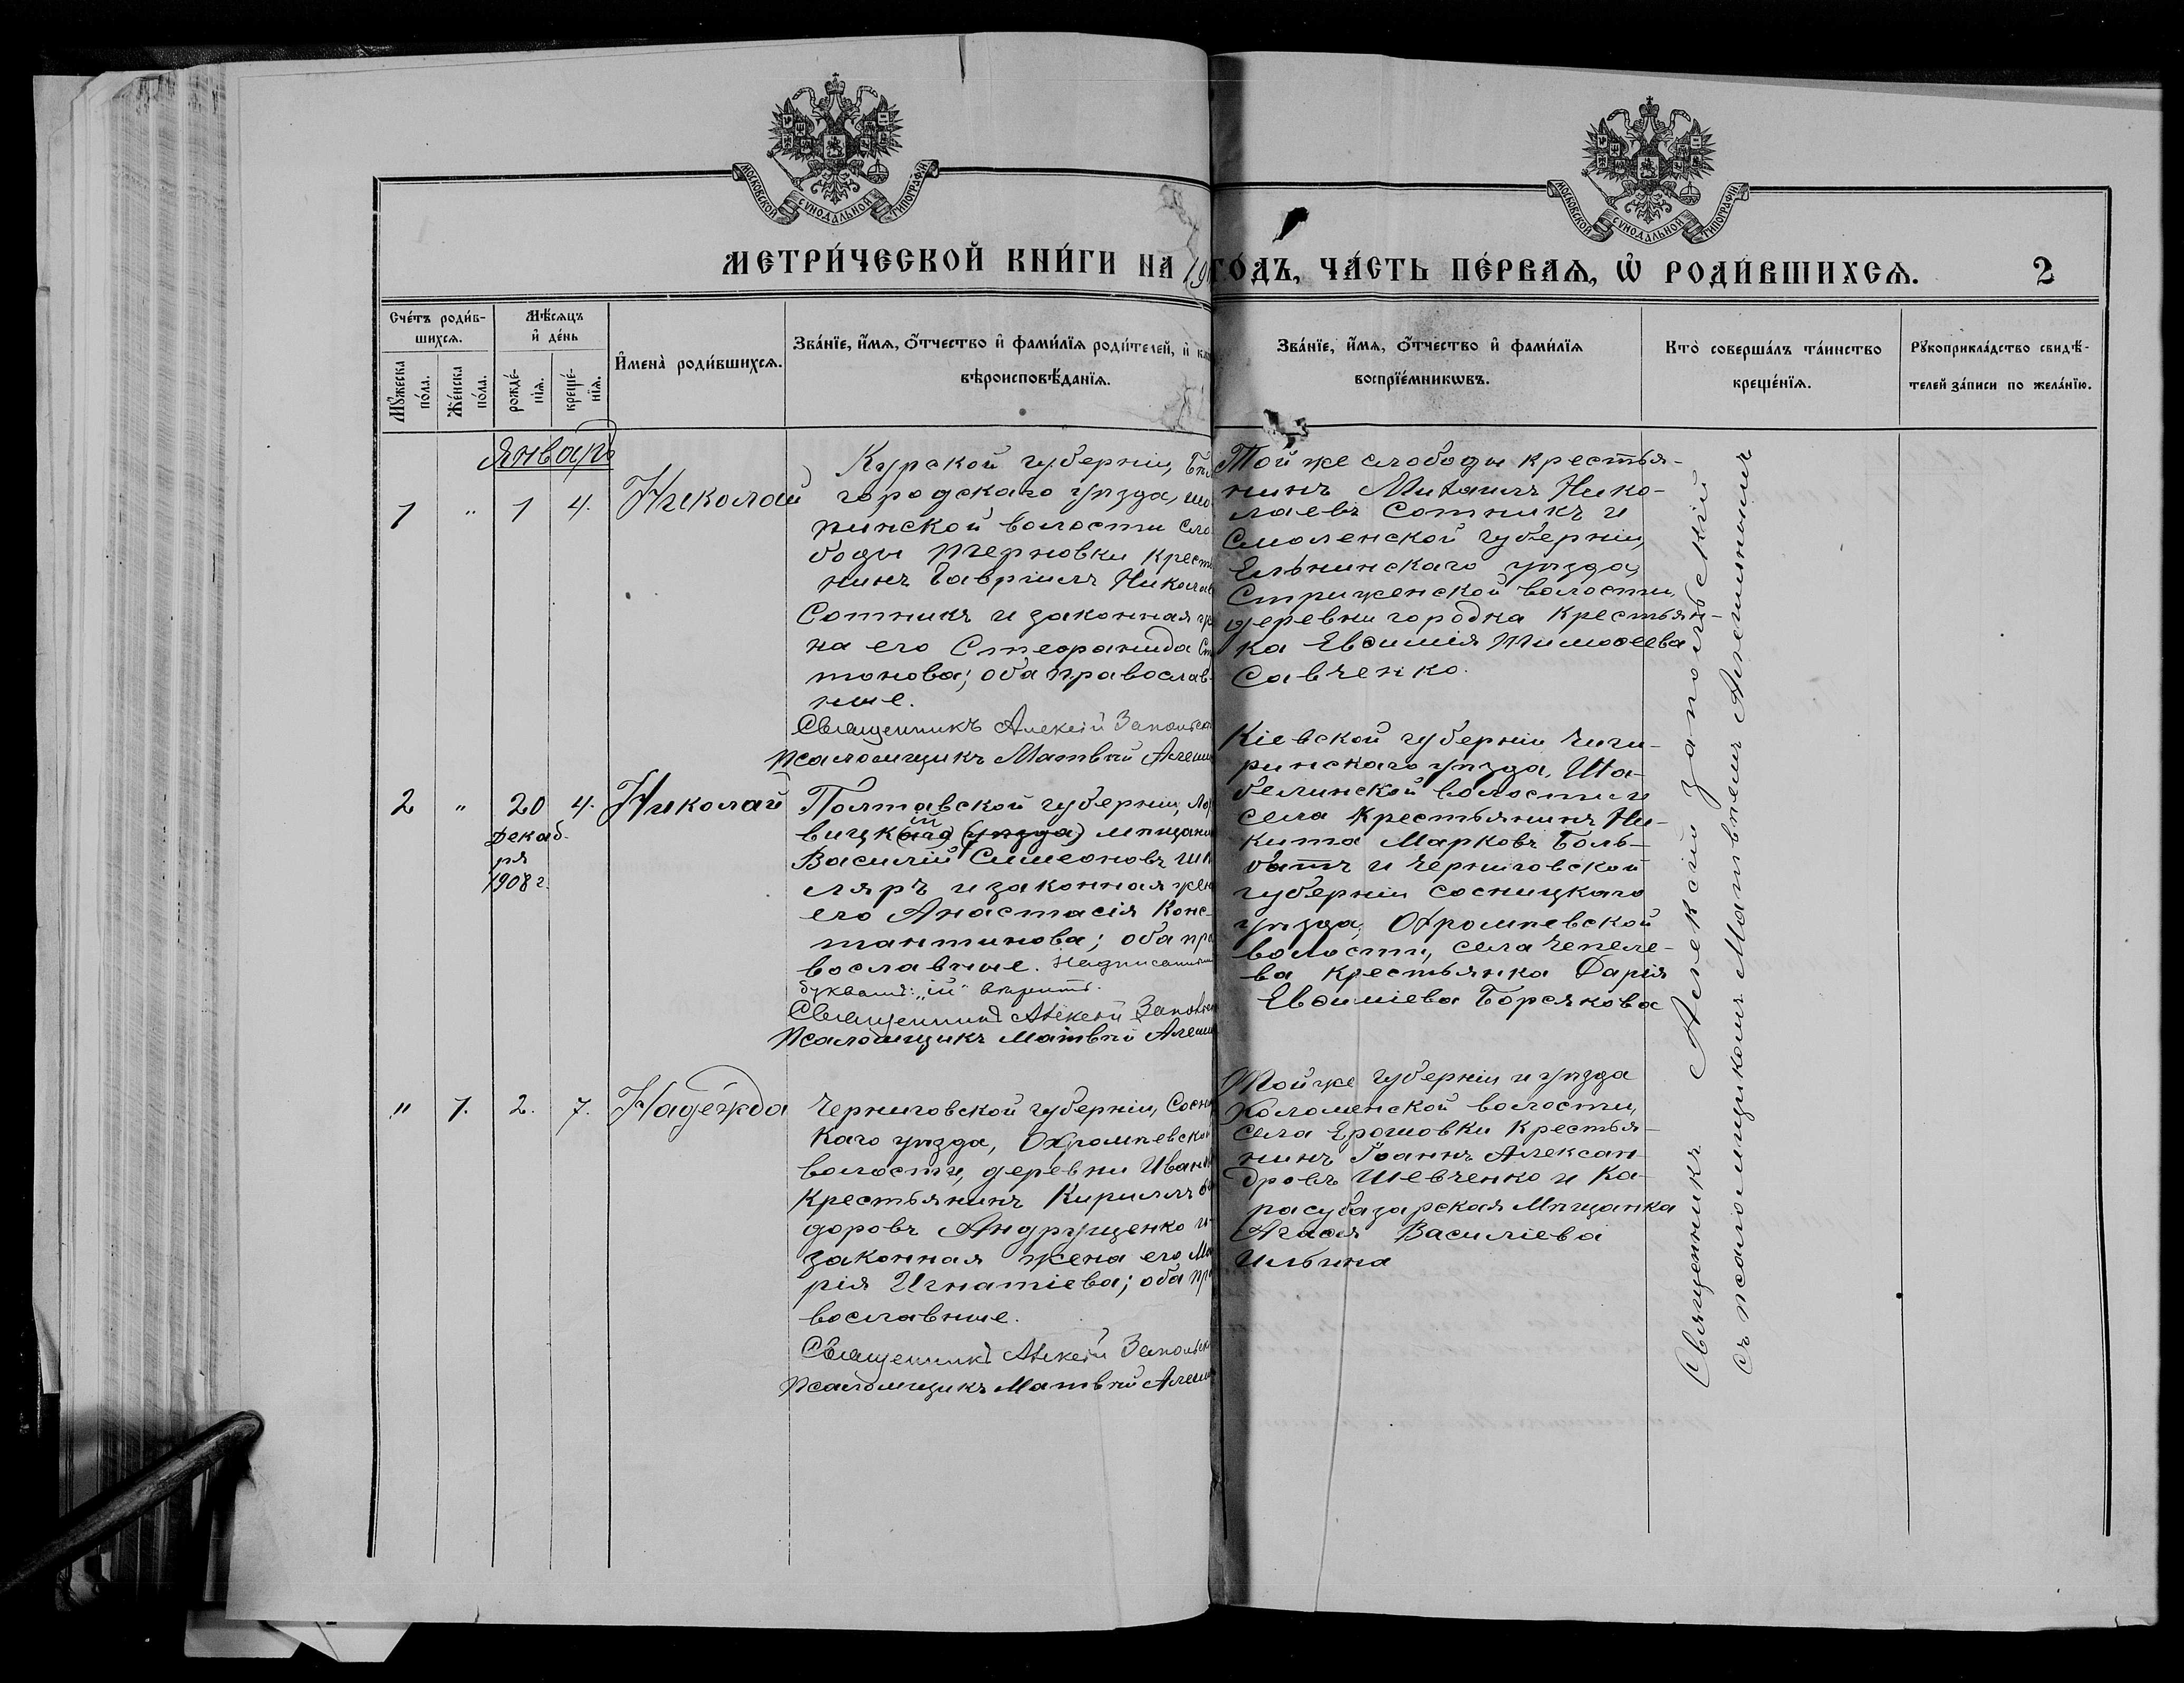 МОСКОВСКОЙ СѴНОДАЛЬНОЙ ТИПОГРАФІИ
МОСКОВСКОЙ СѴНОДАЛЬНОЙ ТИПОГРАФІИ
МЕТРИ́ЧЕСКОЙ КНИ́ГИ НА 190
ГО́ДЪ, ЧА́СТЬ ПЕ́РВАѦ, Ѡ҆ РОДИ́ВШИХСѦ. 2
Сче́тъ роди́в-
шихсѧ.
Мꙋ́жеска
по́ла.
Же́нска
по́ла.
Мѣ́сѧцъ
и҆ де́нь
рожде́-
нїѧ.
креще́-
нїѧ.
И҆мена̀ роди́вшихсѧ.
Зва́нїе, и҆́мѧ, ѻ҆́тчество и҆ фами́лїѧ роди́телей, и҆
вѣроисповѣ́данїѧ.
Зва́нїе, и҆́мѧ, ѻ҆́тчество и҆ фами́лїѧ
воспрїе́мникѡвъ.
Кто̀ соверша́лъ та́инство
креще́нїѧ.
Рꙋкоприкла́дство свидѣ́-
телей за́писи по жела́нїю.
Январь
1 " 1 4. Николай
Курской губерніи, Бѣл
городскаго уѣзда, Шо
пинской волости сло
боды Терновки крест
нинъ Гавріилъ Николаев
Сотникъ и законная
на его Стефанида
тонова; оба православ
ные.
Священникъ Алексій Запольск
Псаломщикъ Матвѣй Алеши
Той же слободы крестья-
нинъ Михаилъ Нико-
лаевъ Сотникъ и
Смоленской губерніи,
Ельнинскаго уѣзда,
Стриженской волости,
деревни Городка крестьян-
ка Евѳимія Тимоѳеева
Савченко.
2 " 20 4. Николай
Декаб-
ря
1908 г.
Полтавской губерніи, Ло
ій
вицкаго (уѣзда) мѣщани
Василій Симеоновъ
ляръ и законная жен
его Анастасія Конс-
тантинова; оба пра
вославные. Надписанным
буквамъ: „ій" вѣрить.
Священникъ Алексій Запольск
Псаломщикъ Матвѣй Алеши
Кіевской губерніи Чиги-
ринскаго уѣзда, Ша-
белинской волости и
села крестьянинъ Ни-
кита Марковъ Боль-
батъ и Черниговской
губерніи Сосницкаго
уѣзда, Охромѣевской
волости, села Чепеле-
ва крестьянка Дарія
Евѳиміева Борсякова
" 1. 2. 7. Надежда
Черниговской губерніи, Сосни
каго уѣзда, Охромѣевской
волости, деревни Иван
крестьянинъ Кириллъ
доровъ Андрущенко и
законная жена его Ма
рія Игнатіева; оба пра
вославные.
Священникъ Алексій Запольск
Псаломщикъ Матвѣй Алеши
Той же губерніи и уѣзда
Холоменской волости,
села Ерошовки крестья-
нинъ Іоаннъ Алексан-
дровъ Шевченко и Ка-
расубазарская мѣщанка
Агаѳія Василіева
Ильина
Священникъ Алексій Запольскій
съ псаломщикомъ Матвѣемъ Алешинымъ